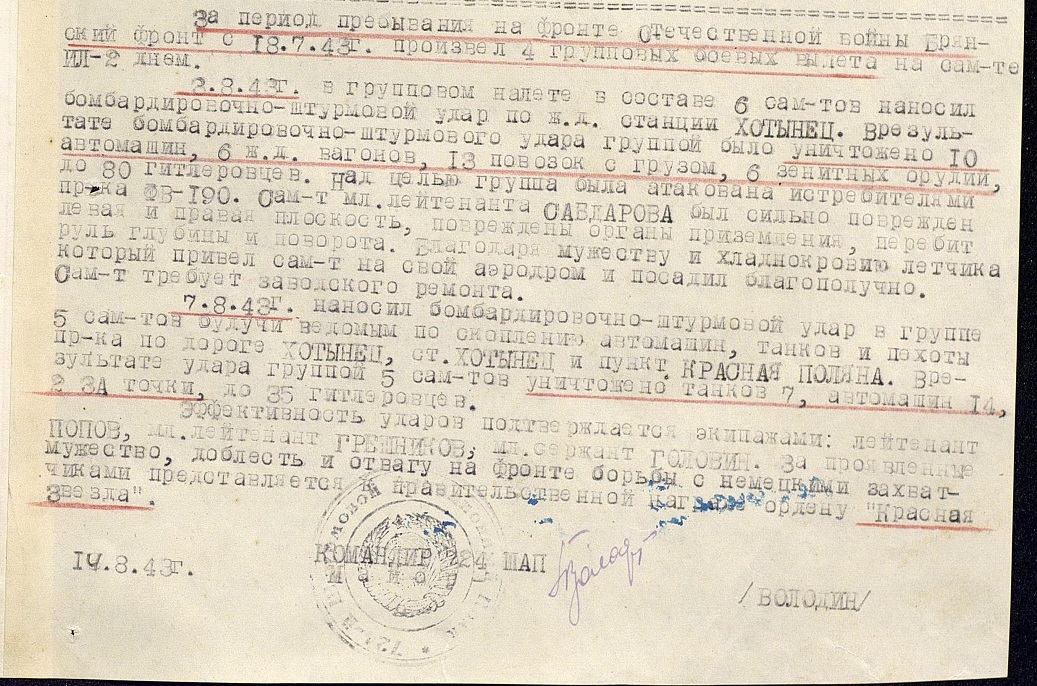 За период пребывания на фронте Отечественной войны Брян-
ский фронт с 18.7.43г. произвел 4 групповых боевых вылета на сам-те
ИЛ-2 днем.
3.8.43г. в групповом налете в составе 6 сам-тов наносил
бомбардировочно-штурмовой удар по ж.д. станции ХОТЫНЕЦ. Врезуль-
тате бомбардировочно-штурмового удара группой было уничтожено 10
автомашин, 6 ж.д. вагонов, 13 повозок с грузом, 6 зенитных орудий,
до 80 гитлеровцев. Над целью группа была атакована истребителями
пр-ка ФВ-190. Сам-т мл.лейтенанта САБДАРОВА был сильно поврежден
левая и правая плоскость, повреждены органы приземления, перебит
руль глубины и поворота. Благодаря мужеству и хладнокровию летчика
который привел сам-т на свой аэродром и посадил благополучно.
Сам-т требует заводского ремонта.
7.8.43г. наносил бомбардировочно-штурмовой удар в группе
5 сам-тов будучи ведомым по скоплению автомашин, танков и пехоты
пр-ка по дороге ХОТЫНЕЦ, ст.ХОТЫНЕЦ и пункт КРАСНАЯ ПОЛЯНА. Вре-
зультате удара группой 5 сам-тов уничтожено танков 7, автомашин 14,
2 ЗА точки, до 35 гитлеровцев.
Эффективность ударов подтверждается экипажами: лейтенант
ПОПОВ, мл.лейтенант ГРЕШНИКОВ, мл.сержант ГОЛОВИН. За проявленные
мужество, доблесть и отвагу на фронте борьбы с немецкими захват-
чиками представляется к правительственной награде ордену "Красная
Звезда".
КОМАНДИР 24 ШАП
14.8.43г.
/ВОЛОДИН/